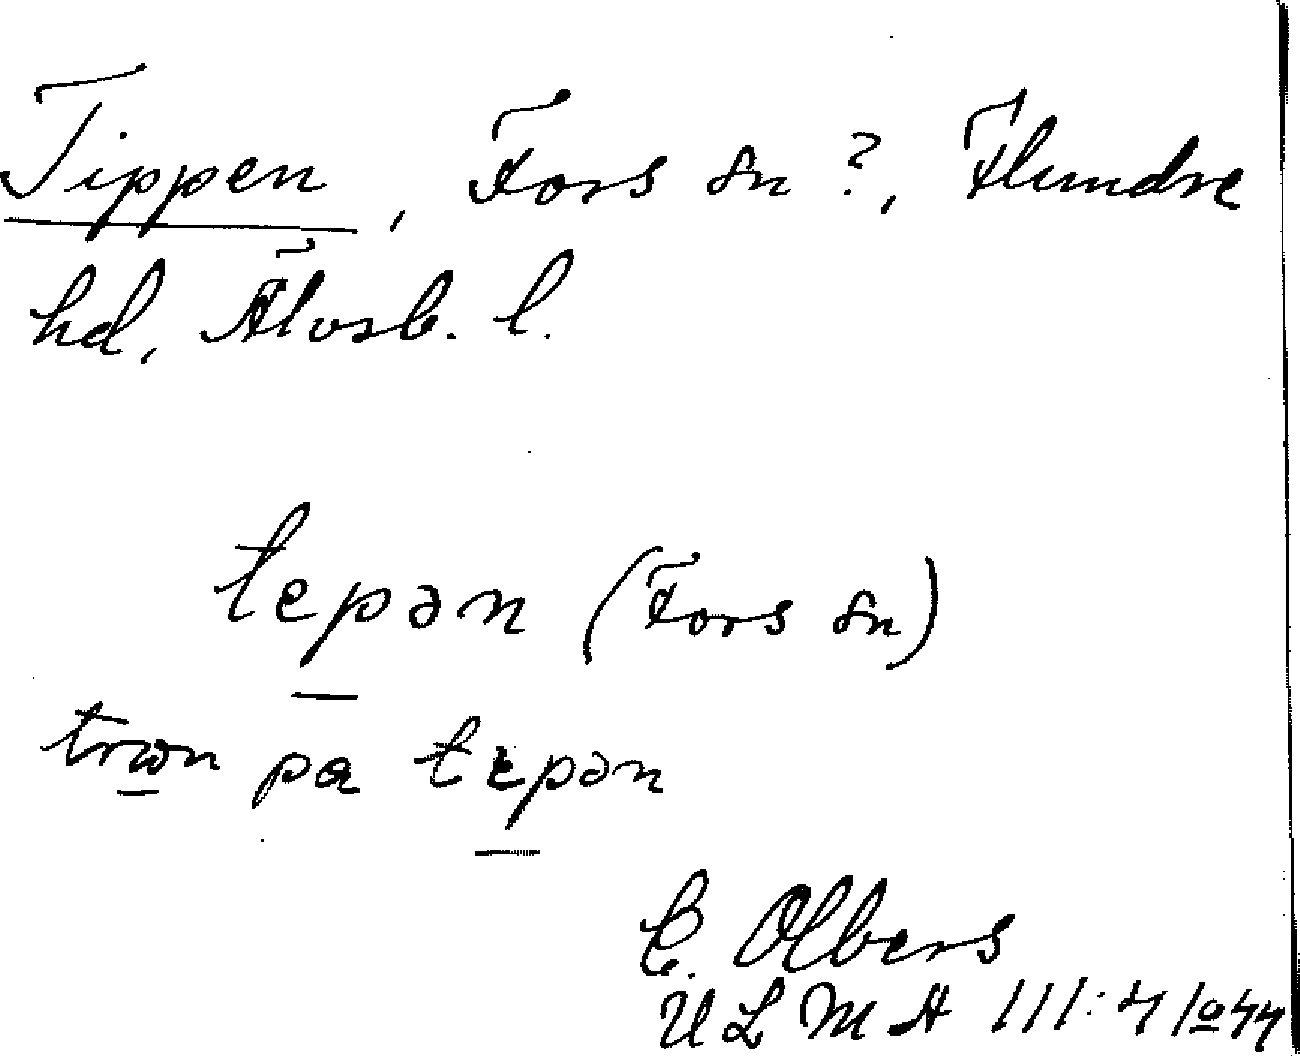 Tippen, Fors sn?, Flundre
hd, Älvsb. l.
tepən (Fors sn)
pa tepən
E. Olbers
ULMA 111:4